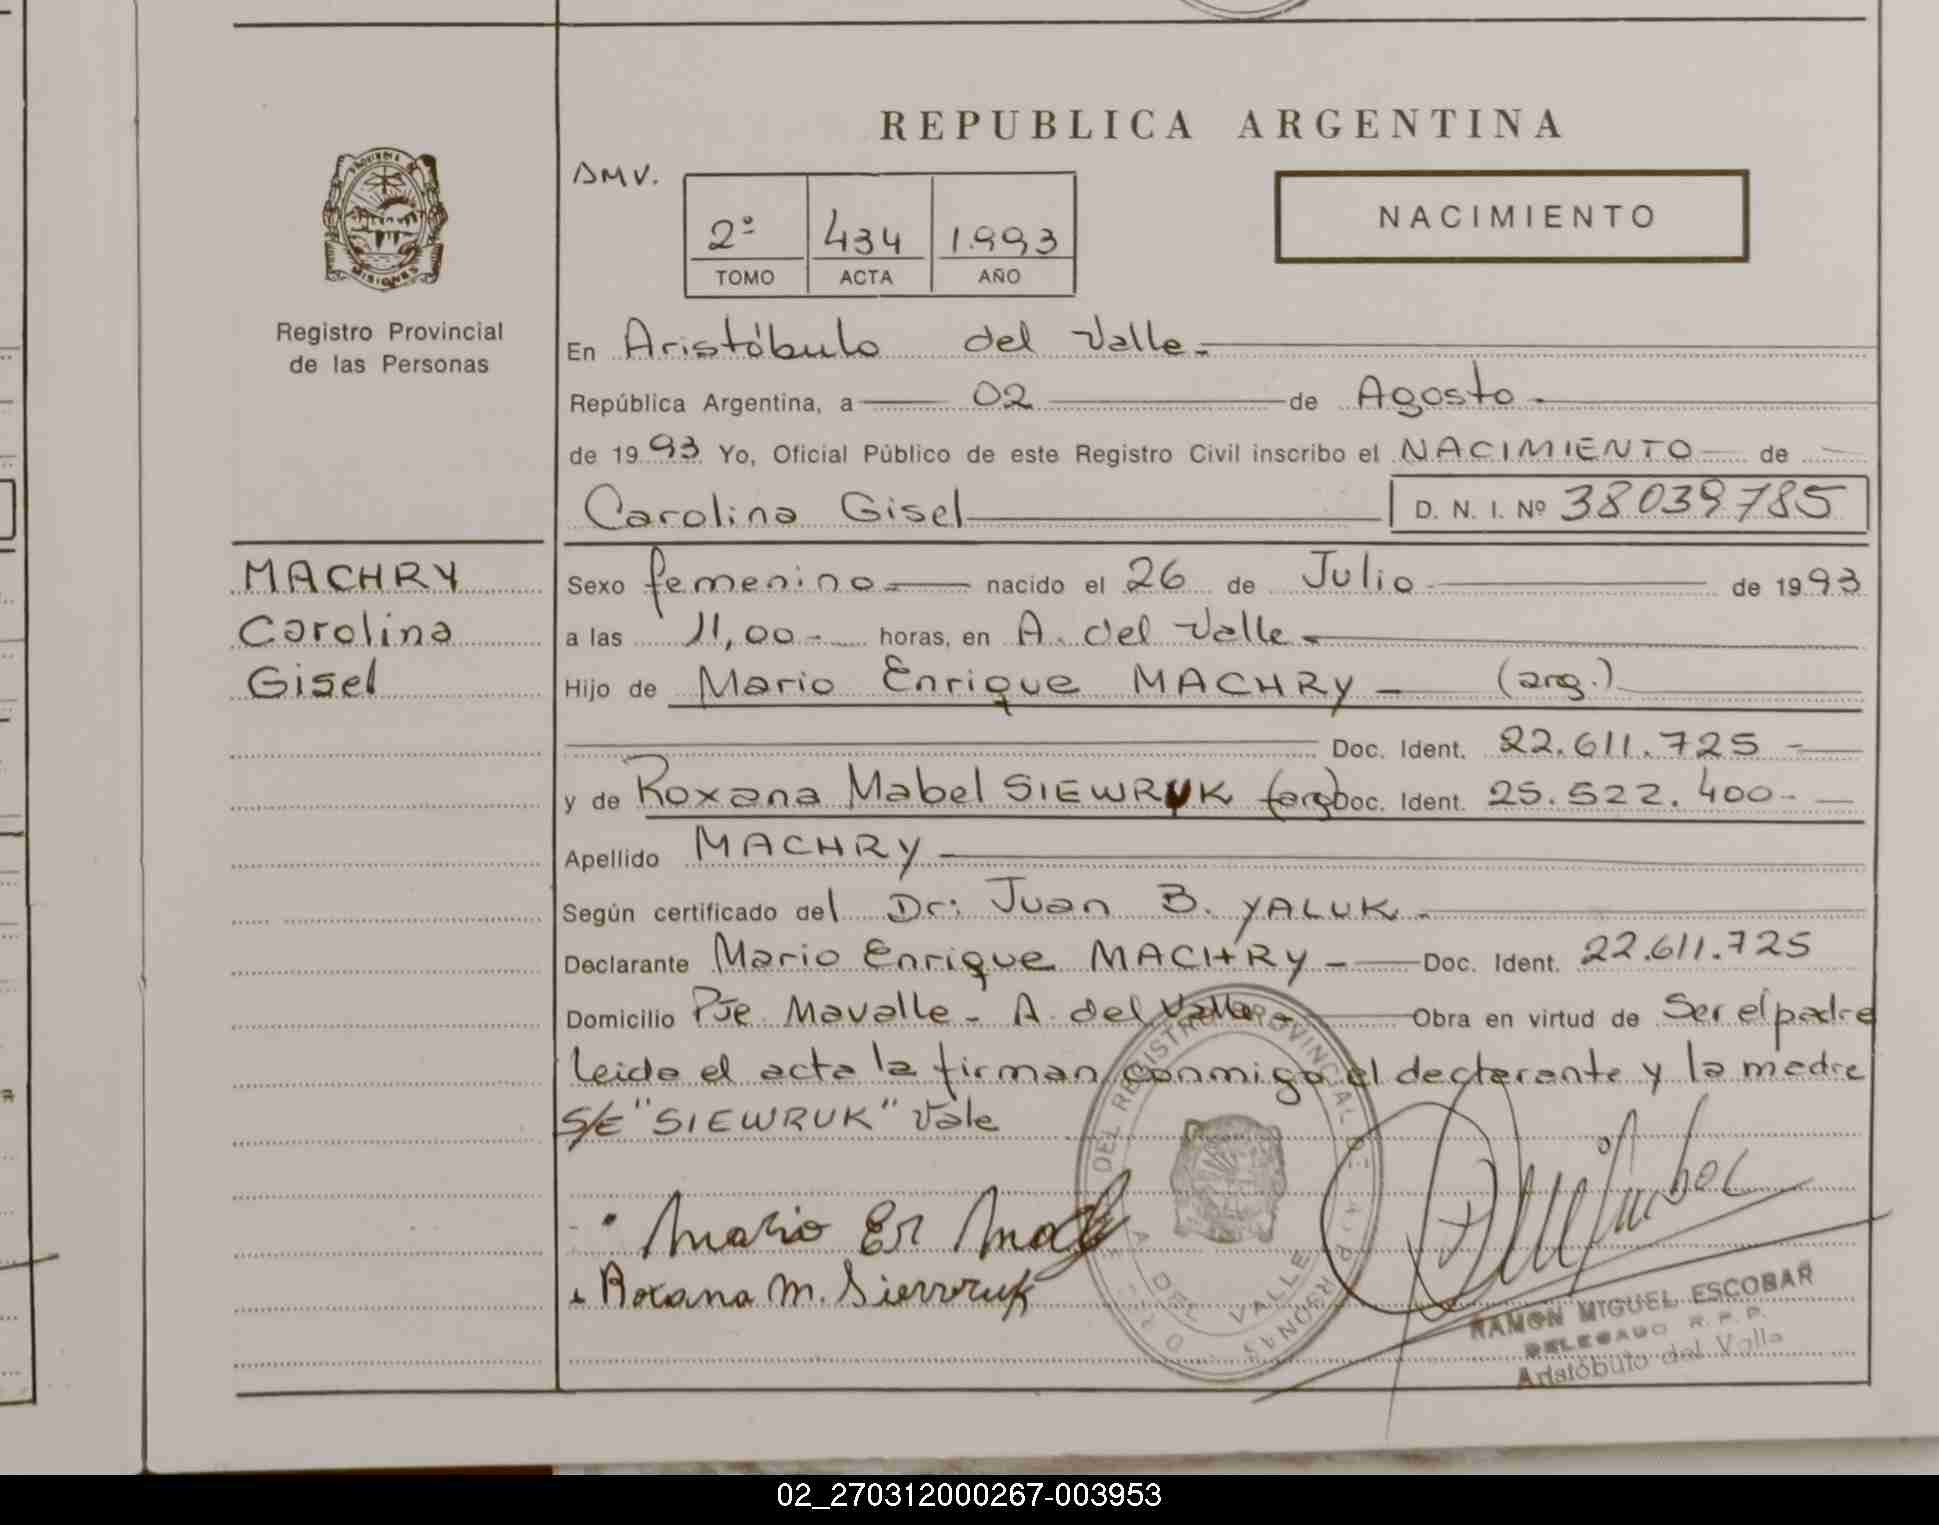 REPUBLICA ARGENTINA
DMV.
2º 434 1.993
TOMO ACTA AÑO
NACIMIENTO
PROVINCIA DE
MISIONES
Registro Provincial
de las Personas
MACHRY
Carolina
Gisel
En Aristóbulo del Valle.
República Argentina, a 02 de Agosto.
de 1993 Yo, Oficial Público de este Registro Civil inscribo el NACIMIENTO de
Carolina Gisel D. N. I. Nº 38039785
Sexo femenino nacido el 26 de Julio de 1993
a las 11,00 horas, en A. del Valle.
Hijo de Mario Enrique MACHRY (arg.)
Doc. Ident. 22.611.725
y de Roxana Mabel SIEWRUK (arg) Doc. Ident. 25.522.400
Apellido MACHRY
Según certificado del Dr: Juan B. YALUK.
Declarante Mario Enrique MACHRY Doc. Ident. 22.611.725
Domicilio Pje. Mavalle - A. del Valle Obra en virtud de Ser el padre
Leida el acta la firman conmigo el declarante y la madre
S/E "SIEWRUK" Vale
Mario En
Roxana M. Siewruk
DEL REGISTRO PROVINCIAL DE LAS PERSONAS
A. DEL VALLE
RAMON MIGUEL ESCOBAR
DELEGADO R. P. P.
Aristóbulo del Valle
02_270312000267-003953